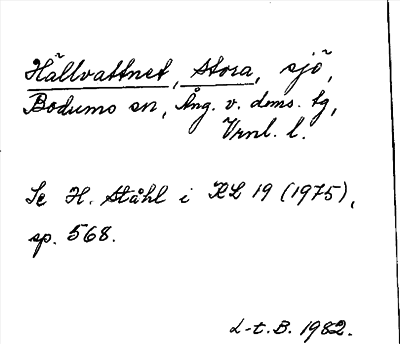 Hällvattnet, Stora, sjö,
Bodums sn, Ång. v. doms. tg,
Vrnl. l.
Se H. Ståhl i KL 19 (1975),
sp. 568.
L-t. B. 1982.